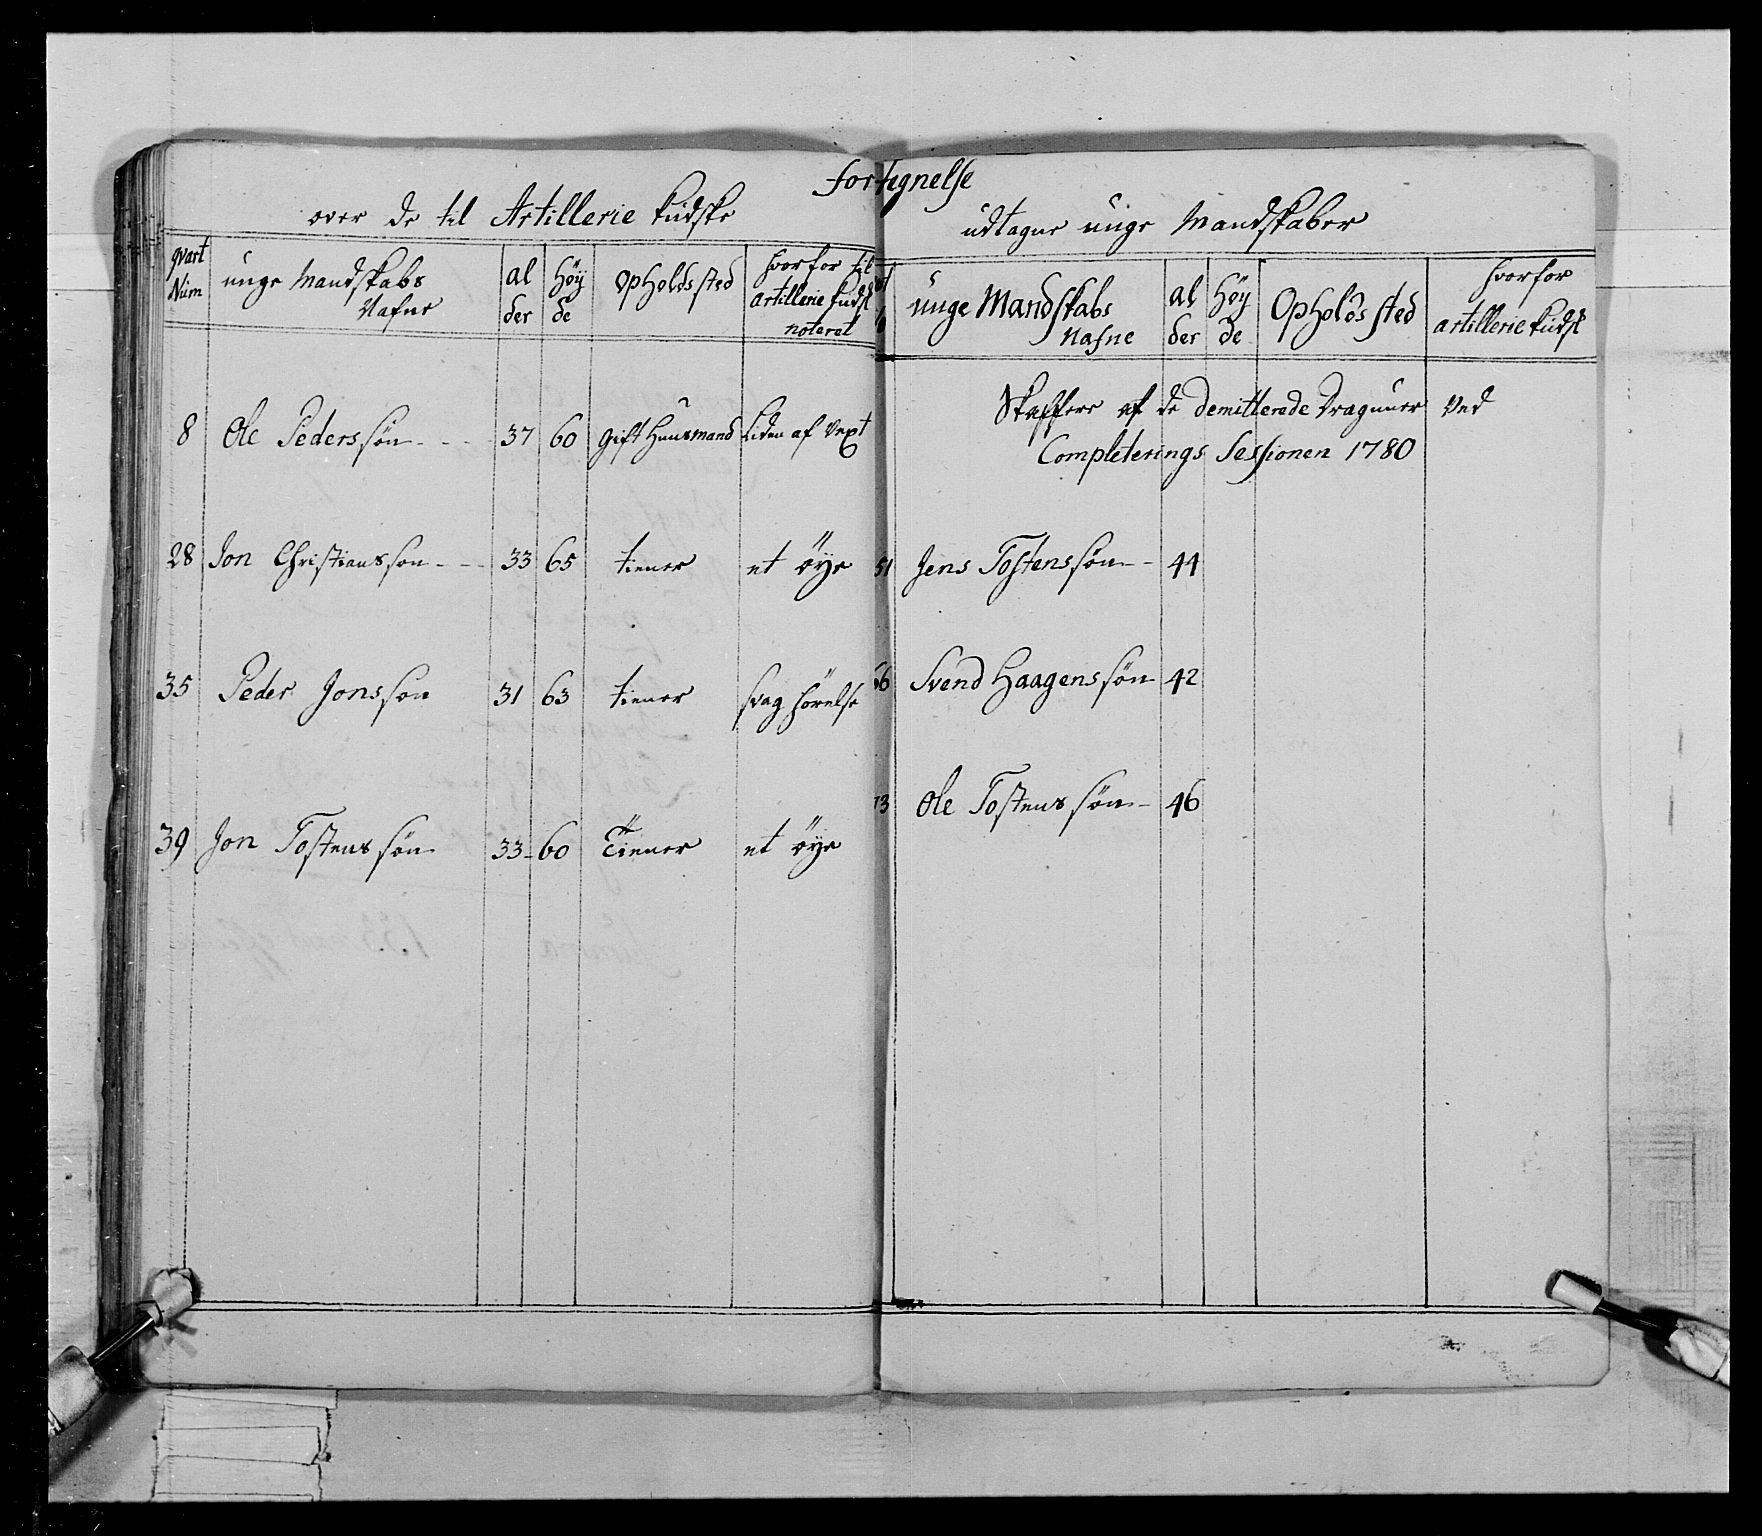 Fortegnelse
over de til Artillerie kudske
udtagne unge Mandskaber
qvart Num
unge Mandskabs Nafne
al der
Höy de
Opholds sted
hvorfor til artillerie kudsk noteret
8 Ole Peders søn 37 60 gift Huusmand Liden af Vext
28 Jon Christians søn 33 65 tiener et öye
35 Peder Jons søn 31 63 tiener svag hörelse
39 Jon Tostens søn 33 60 Tiener et öye
unge Mandskabs Nafne
al der
Höy de
Opholds sted
hvorfor artillerie kudsk
Skaffere af de demitterede Draguner ved
Completerings Sessionen 1780
51 Jens Tostens søn 44
Svend Haagens søn 42
Ole Tostens søn 46